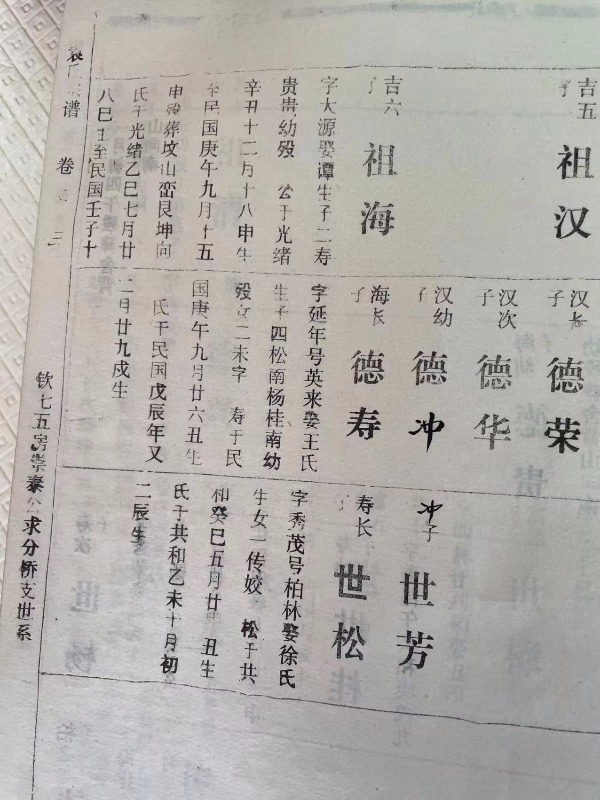 吉五子
祖汉
吉六子
祖海
字大源娶谭生子二寿
贵贵幼殁 公于光绪
辛丑十二月十八申生
至民国庚午九月十五
申没葬坟山峦艮坤向
氏于光绪乙巳七月廿
八巳 至民国壬子十
汉长子
德荣
汉次子
德华
汉幼子
德冲
海长子
德寿
字延年号英来娶王氏
生子四松南杨桂南幼
殁女二未字 寿于民
国庚午九月廿六丑生
氏于民国戊辰年又
二月廿九戌生
冲子
世芳
寿长
世松
字秀茂号柏林娶徐氏
生女一传姣 松于共
和癸巳五月廿 丑生
氏于共和乙未十月初
二辰生
袁氏 谱
卷 三
钦七五房崇泰公求分桥支世系